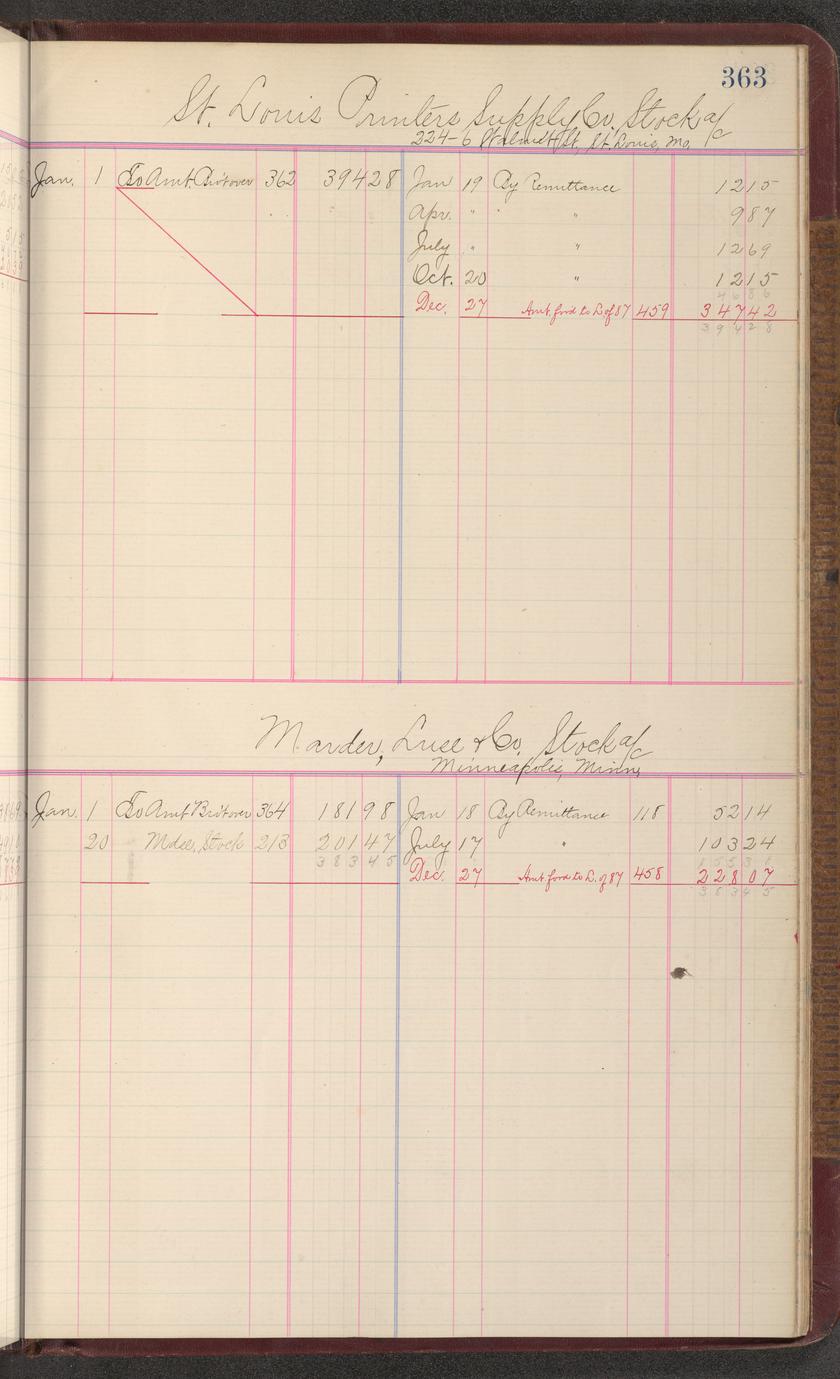 363
St. Louis Printers Supply Co. Stock a/c
224-6 Walnut St, St. Louis, Mo.
Jan. 1 To Amt. Bro't over 362 394 28 Jan 19 By Remittance 12 15
Apr. " " 9 87
July " " 12 69
Oct. 20 " 12 15
46 86
Dec. 27 Amt. ford to L. of 87 459 347 42
394 28
Marder, Luse & Co. Stock a/c
Minneapolis, Minn,
Jan. 1 To Amt. Bro't over 364 181 98 Jan 18 By Remittance 118 52 14
20 Mdse, Stock 213 201 47 July 17 " 103 24
383 45 155 38
Dec. 27 Amt. ford to L. of 87 458 228 07
383 45